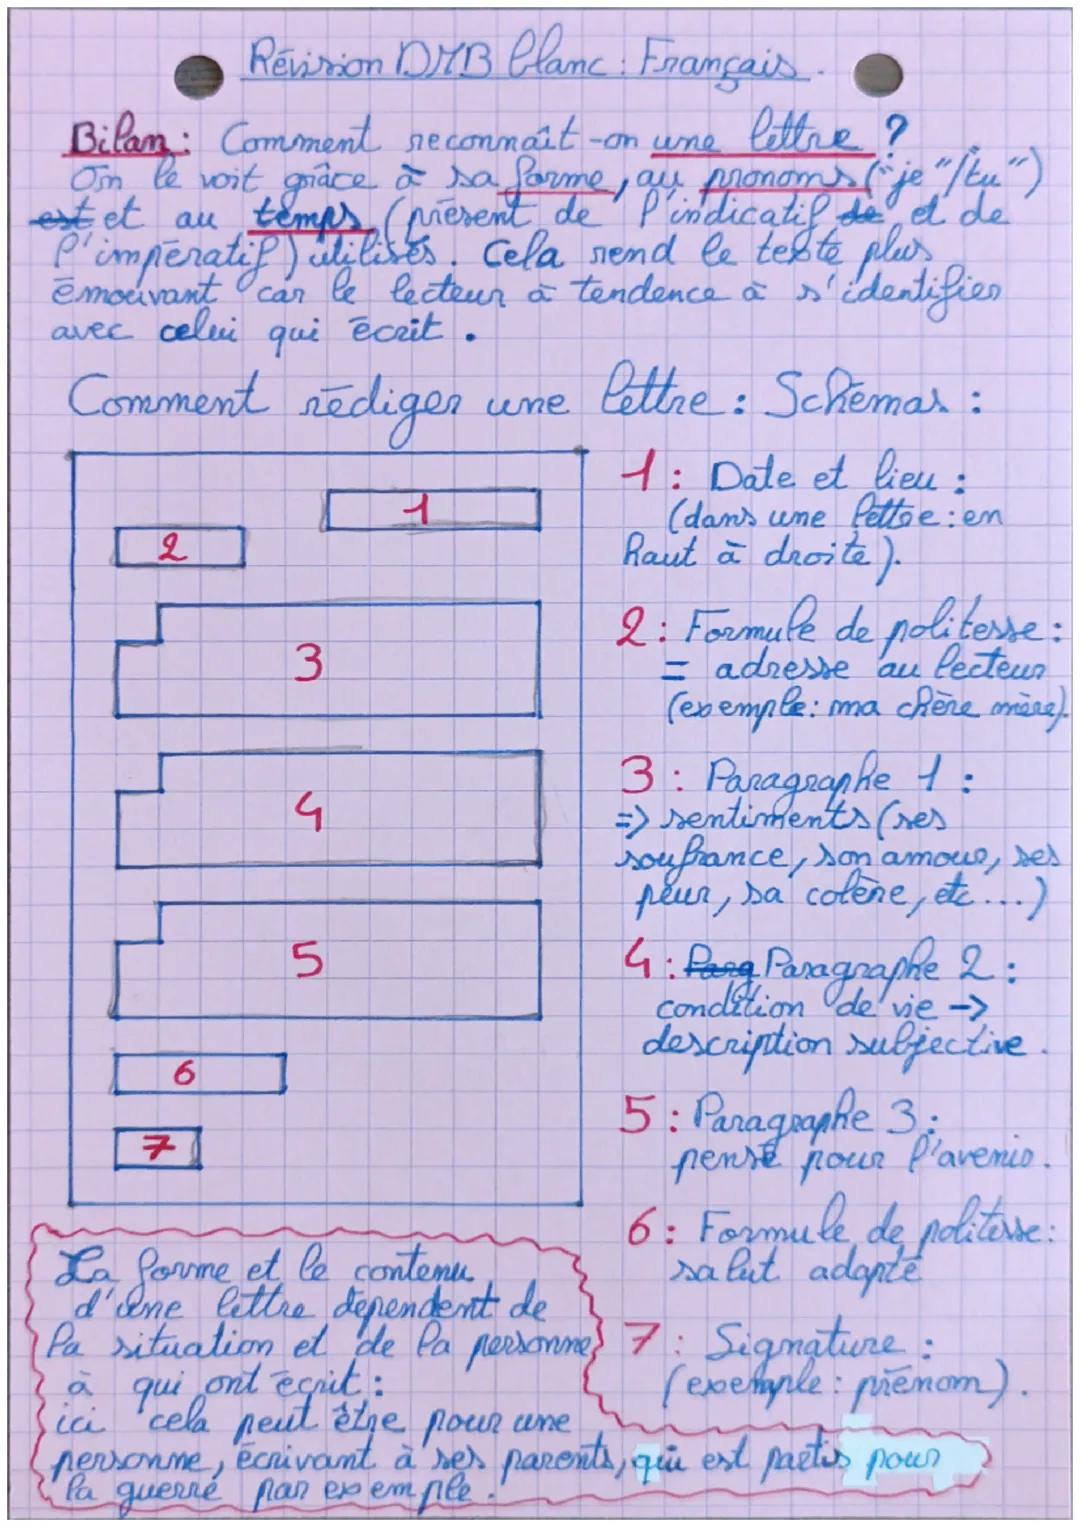 Révision DNB blanc : Français.
Bilan : Comment reconnaît-on une lettre ?
On le voit grâce à sa forme, au pronoms ("je"/"tu")
est et au temps (présent de l'indicatif de et de
l'impératif) utilisés. Cela rend le texte plus
émouvant car le lecteur à tendence à s'identifier
avec celui qui écrit.
Comment rédiger une lettre : Schémas :
1
2
3
4
5
6
7
1 : Date et lieu :
(dans une lettre : en
haut à droite).
2 : Formule de politesse :
= adresse au lecteur
(exemple : ma chère mère).
3 : Paragraphe 1 :
=> sentiments (ses
soufrance, son amour, ses
peur, sa colère, etc...)
4 : Parag Paragraphe 2 :
condition de vie ->
description subjective.
5 : Paragraphe 3 :
pensé pour l'avenir.
6 : Formule de politesse :
salut adapté
7 : Signature :
(exemple : prénom).
La forme et le contenu
d'une lettre dépendent de
la situation et de la personne
à qui ont écrit :
ici cela peut être pour une
personne, écrivant à ses parents, qui est partis pour
la guerre par exemple.